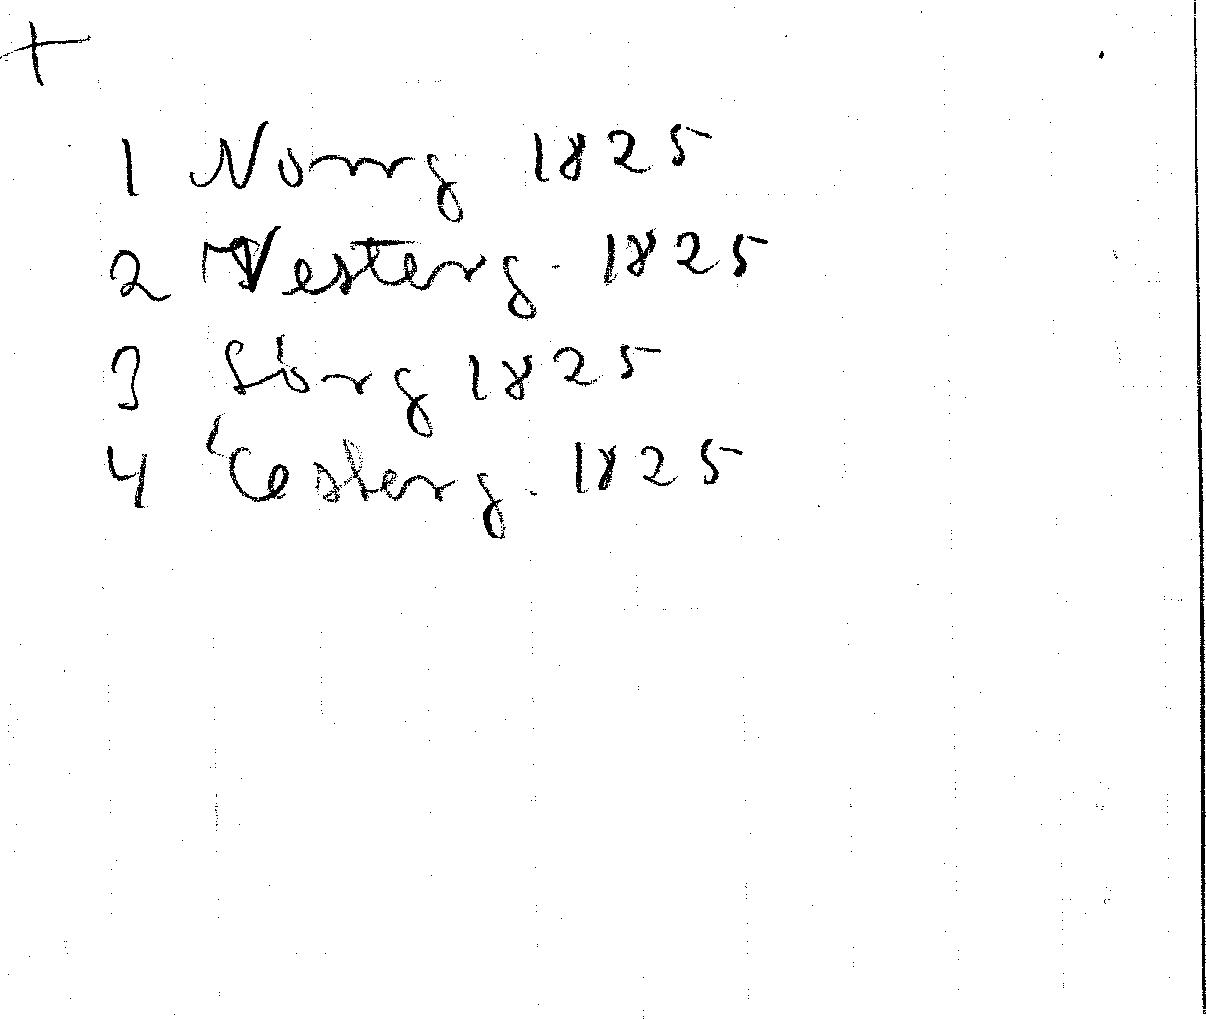 1 Norrg 1825
2 Vesterg. 1825
3 Sörg 1825
4 Österg. 1825